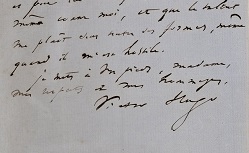 et que
même comme moi, et que le talent
me plaît dans toutes ses formes, même
quand il m'est hostile.
je mets à vos pieds, madame,
mes respects et mes hommages.
Victor Hugo